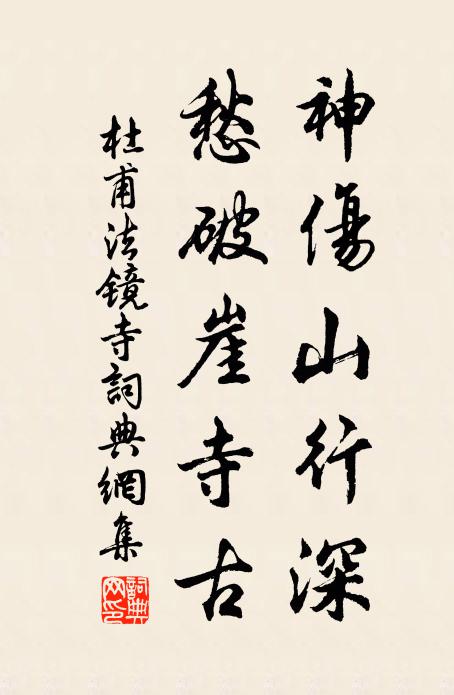 神傷山行深
愁破崖寺古
杜甫法鏡寺詞典網集
詞典网印